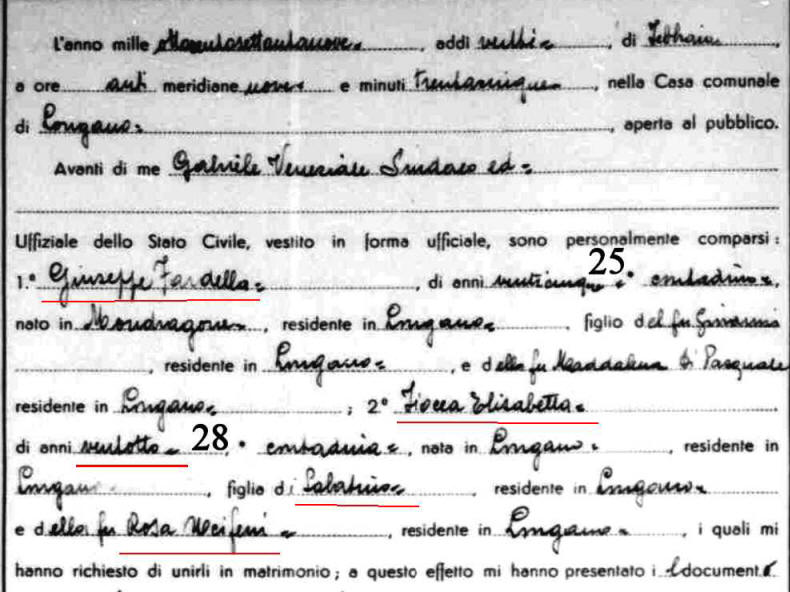 L'anno mille , addì venti , di Febbraio ,
a ore anti meridiane nove e minuti trentacinque , nella Casa comunale
di Longano , aperta al pubblico.
Avanti di me Gabriele Veneziale Sindaco ed
Uffiziale dello Stato Civile, vestito in forma ufficiale, sono personalmente comparsi :
25
1.° Giuseppe Fardella , di anni venticinque , contadino ,
nato in Mondragone , residente in Longano , figlio del fu Giovanni
, residente in Longano , e della fu Maddalena Di Pasquale
residente in Longano ; 2° Fiocca Elisabetta
di anni ventotto 28 , contadina , nata in Longano , residente in
Longano , figlia di Sabatino , residente in Longano
e della fu Rosa , residente in Longano , i quali mi
hanno richiesto di unirli in matrimonio ; a questo effetto mi hanno presentato i document